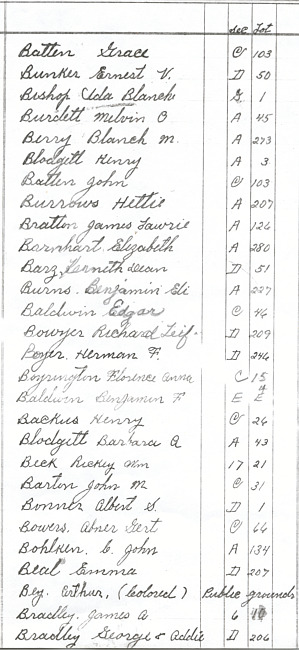 Sec Lot
Batten Grace C 103
Bunker Ernest V. D 50
Bishop Ada Blanch G 1
Burdett Melvin O. A 45
Berry Blanch M. A 273
Blodgett Henry A 3
Batten John C 103
Burrows Hettie A 207
Bratton James Lawrie A 126
Barnhart Elizabeth A 280
Barz, Kernith Dean D 51
Burns. Benjamin Eli A 227
Baldwin Edgar C 46
Bowyer Richard Leif D 209
Boyer, Herman F. D 246
Boyington Florence Anna C 15
Baldwin Benjamin F E
Backus Henry C 26
Blodgett Barbara A A 43
Beck Rickey Wm 17 21
Barton John M C 31
Bonner Albert S. D 1
Bowers. Abner Gert C 66
Bohlken. C. John A 134
Beal Emma D 207
Bey. Arthur, (Colored) Public grounds
Bradley. James A 6
Bradley George & Addie D 206